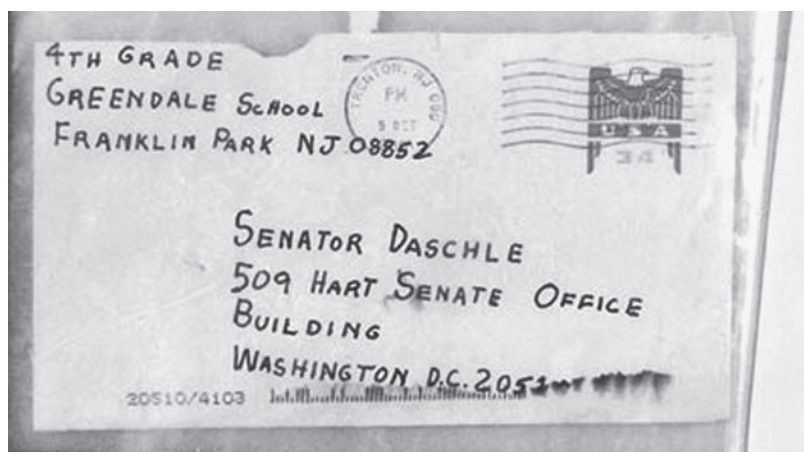 4TH GRADE
GREENDALE SCHOOL
FRANKLIN PARK NJ 08852
TRENTON, NJ
PM
OCT
USA
34
SENATOR DASCHLE
509 HART SENATE OFFICE
BUILDING
WASHINGTON D.C. 205
20510/4103